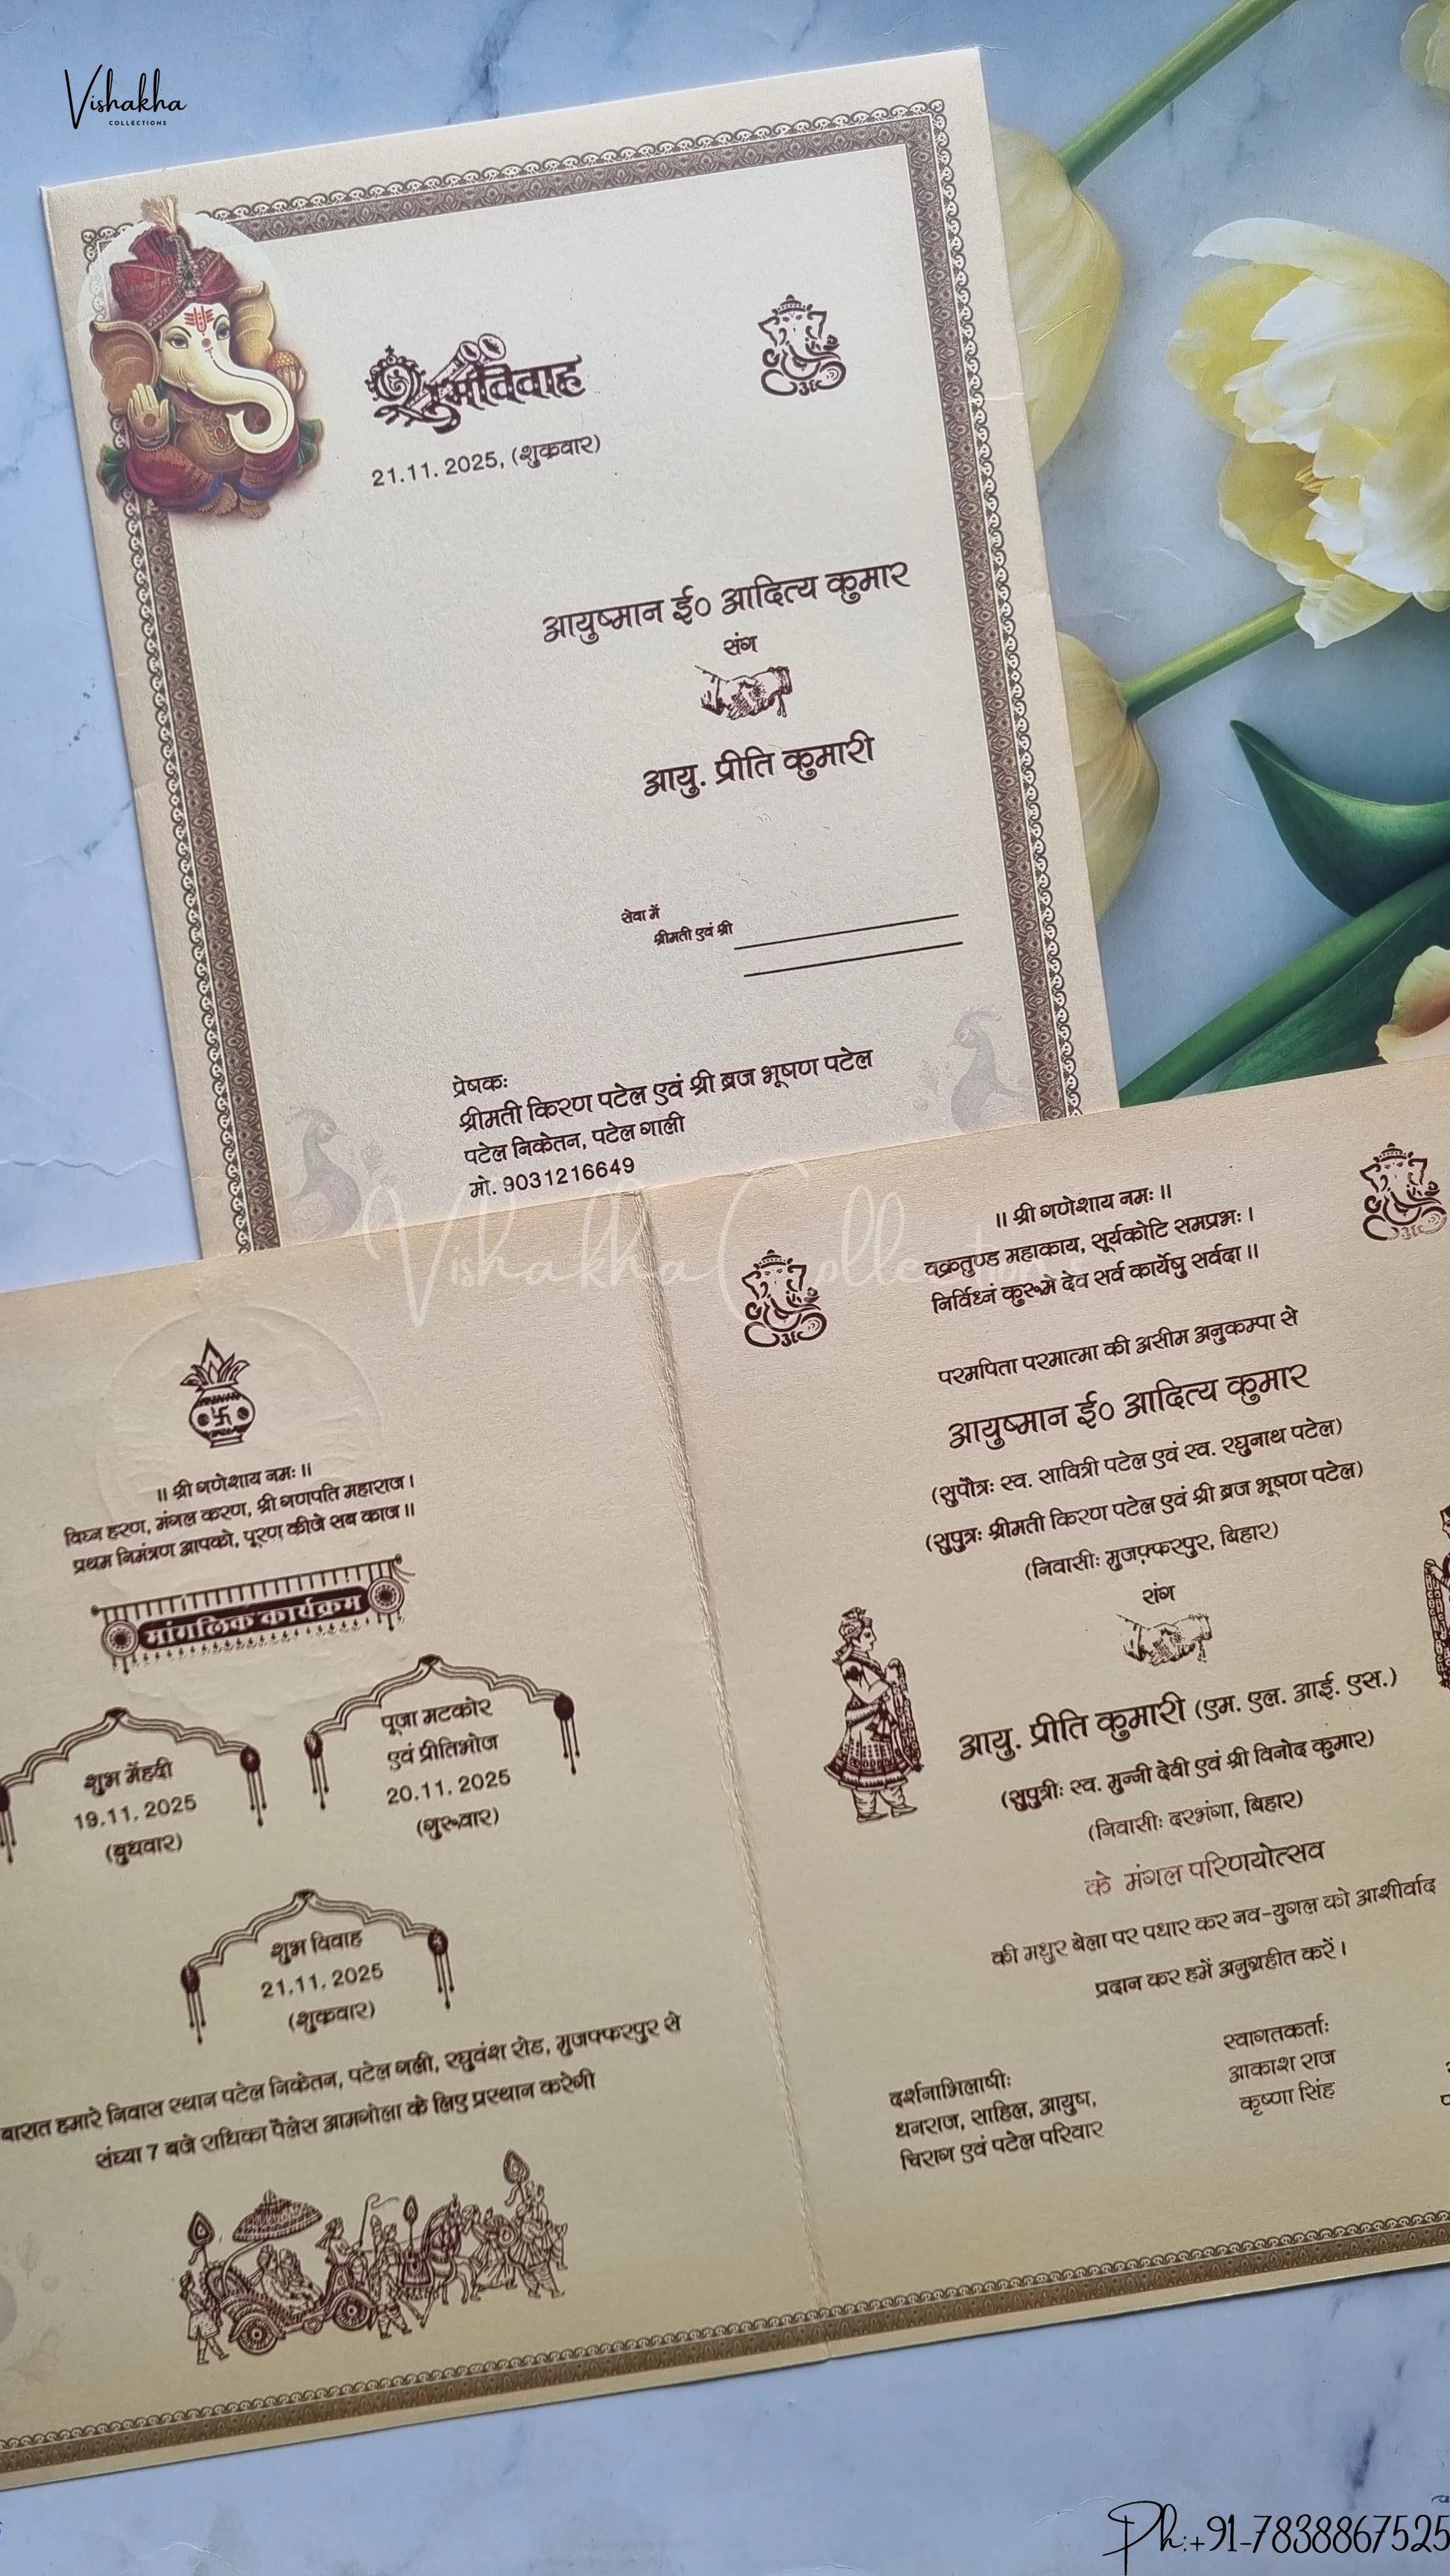 Vishakha
COLLECTIONS
शुभविवाह
21.11.2025, (शुक्रवार)
आयुष्मान ई० आदित्य कुमार
संग
आयु. प्रीति कुमारी
सेवा में
श्रीमती एवं श्री
प्रेषकः
श्रीमती किरण पटेल एवं श्री ब्रज भूषण पटेल
पटेल निकेतन, पटेल गाली
मो. 9031216649
Vishakha Collections
॥ श्री गणेशाय नमः ॥
विघ्न हरण, मंगल करण, श्री गणपति महाराज।
प्रथम निमंत्रण आपको, पूरण कीजे सब काज॥
मांगलिक कार्यक्रम
शुभ मेंहदी
19.11.2025
(बुधवार)
पूजा मटकोर
एवं प्रीतिभोज
20.11.2025
(गुरूवार)
शुभ विवाह
21.11.2025
(शुक्रवार)
बारात हमारे निवास स्थान पटेल निकेतन, पटेल गली, रघुवंश रोड, मुजफ्फरपुर से
संध्या 7 बजे राधिका पैलेस आमगोला के लिए प्रस्थान करेगी
॥ श्री गणेशाय नमः ॥
वक्रतुण्ड महाकाय, सूर्यकोटि समप्रभः।
निर्विध्नं कुरूमे देव सर्व कार्येषु सर्वदा॥
परमपिता परमात्मा की असीम अनुकम्पा से
आयुष्मान ई० आदित्य कुमार
(सुपौत्रः स्व. सावित्री पटेल एवं स्व. रघुनाथ पटेल)
(सुपुत्रः श्रीमती किरण पटेल एवं श्री ब्रज भूषण पटेल)
(निवासीः मुजफ़्फरपुर, बिहार)
संग
आयु. प्रीति कुमारी (एम. एल. आई. एस.)
(सुपुत्रीः स्व. मुन्नी देवी एवं श्री विनोद कुमार)
(निवासीः दरभंगा, बिहार)
के मंगल परिणयोत्सव
की मधुर बेला पर पधार कर नव-युगल को आशीर्वाद
प्रदान कर हमें अनुग्रहीत करें।
दर्शनाभिलाषीः
धनराज, साहिल, आयुष,
चिराग एवं पटेल परिवार
स्वागतकर्ताः
आकाश राज
कृष्णा सिंह
Ph:+91-7838867525